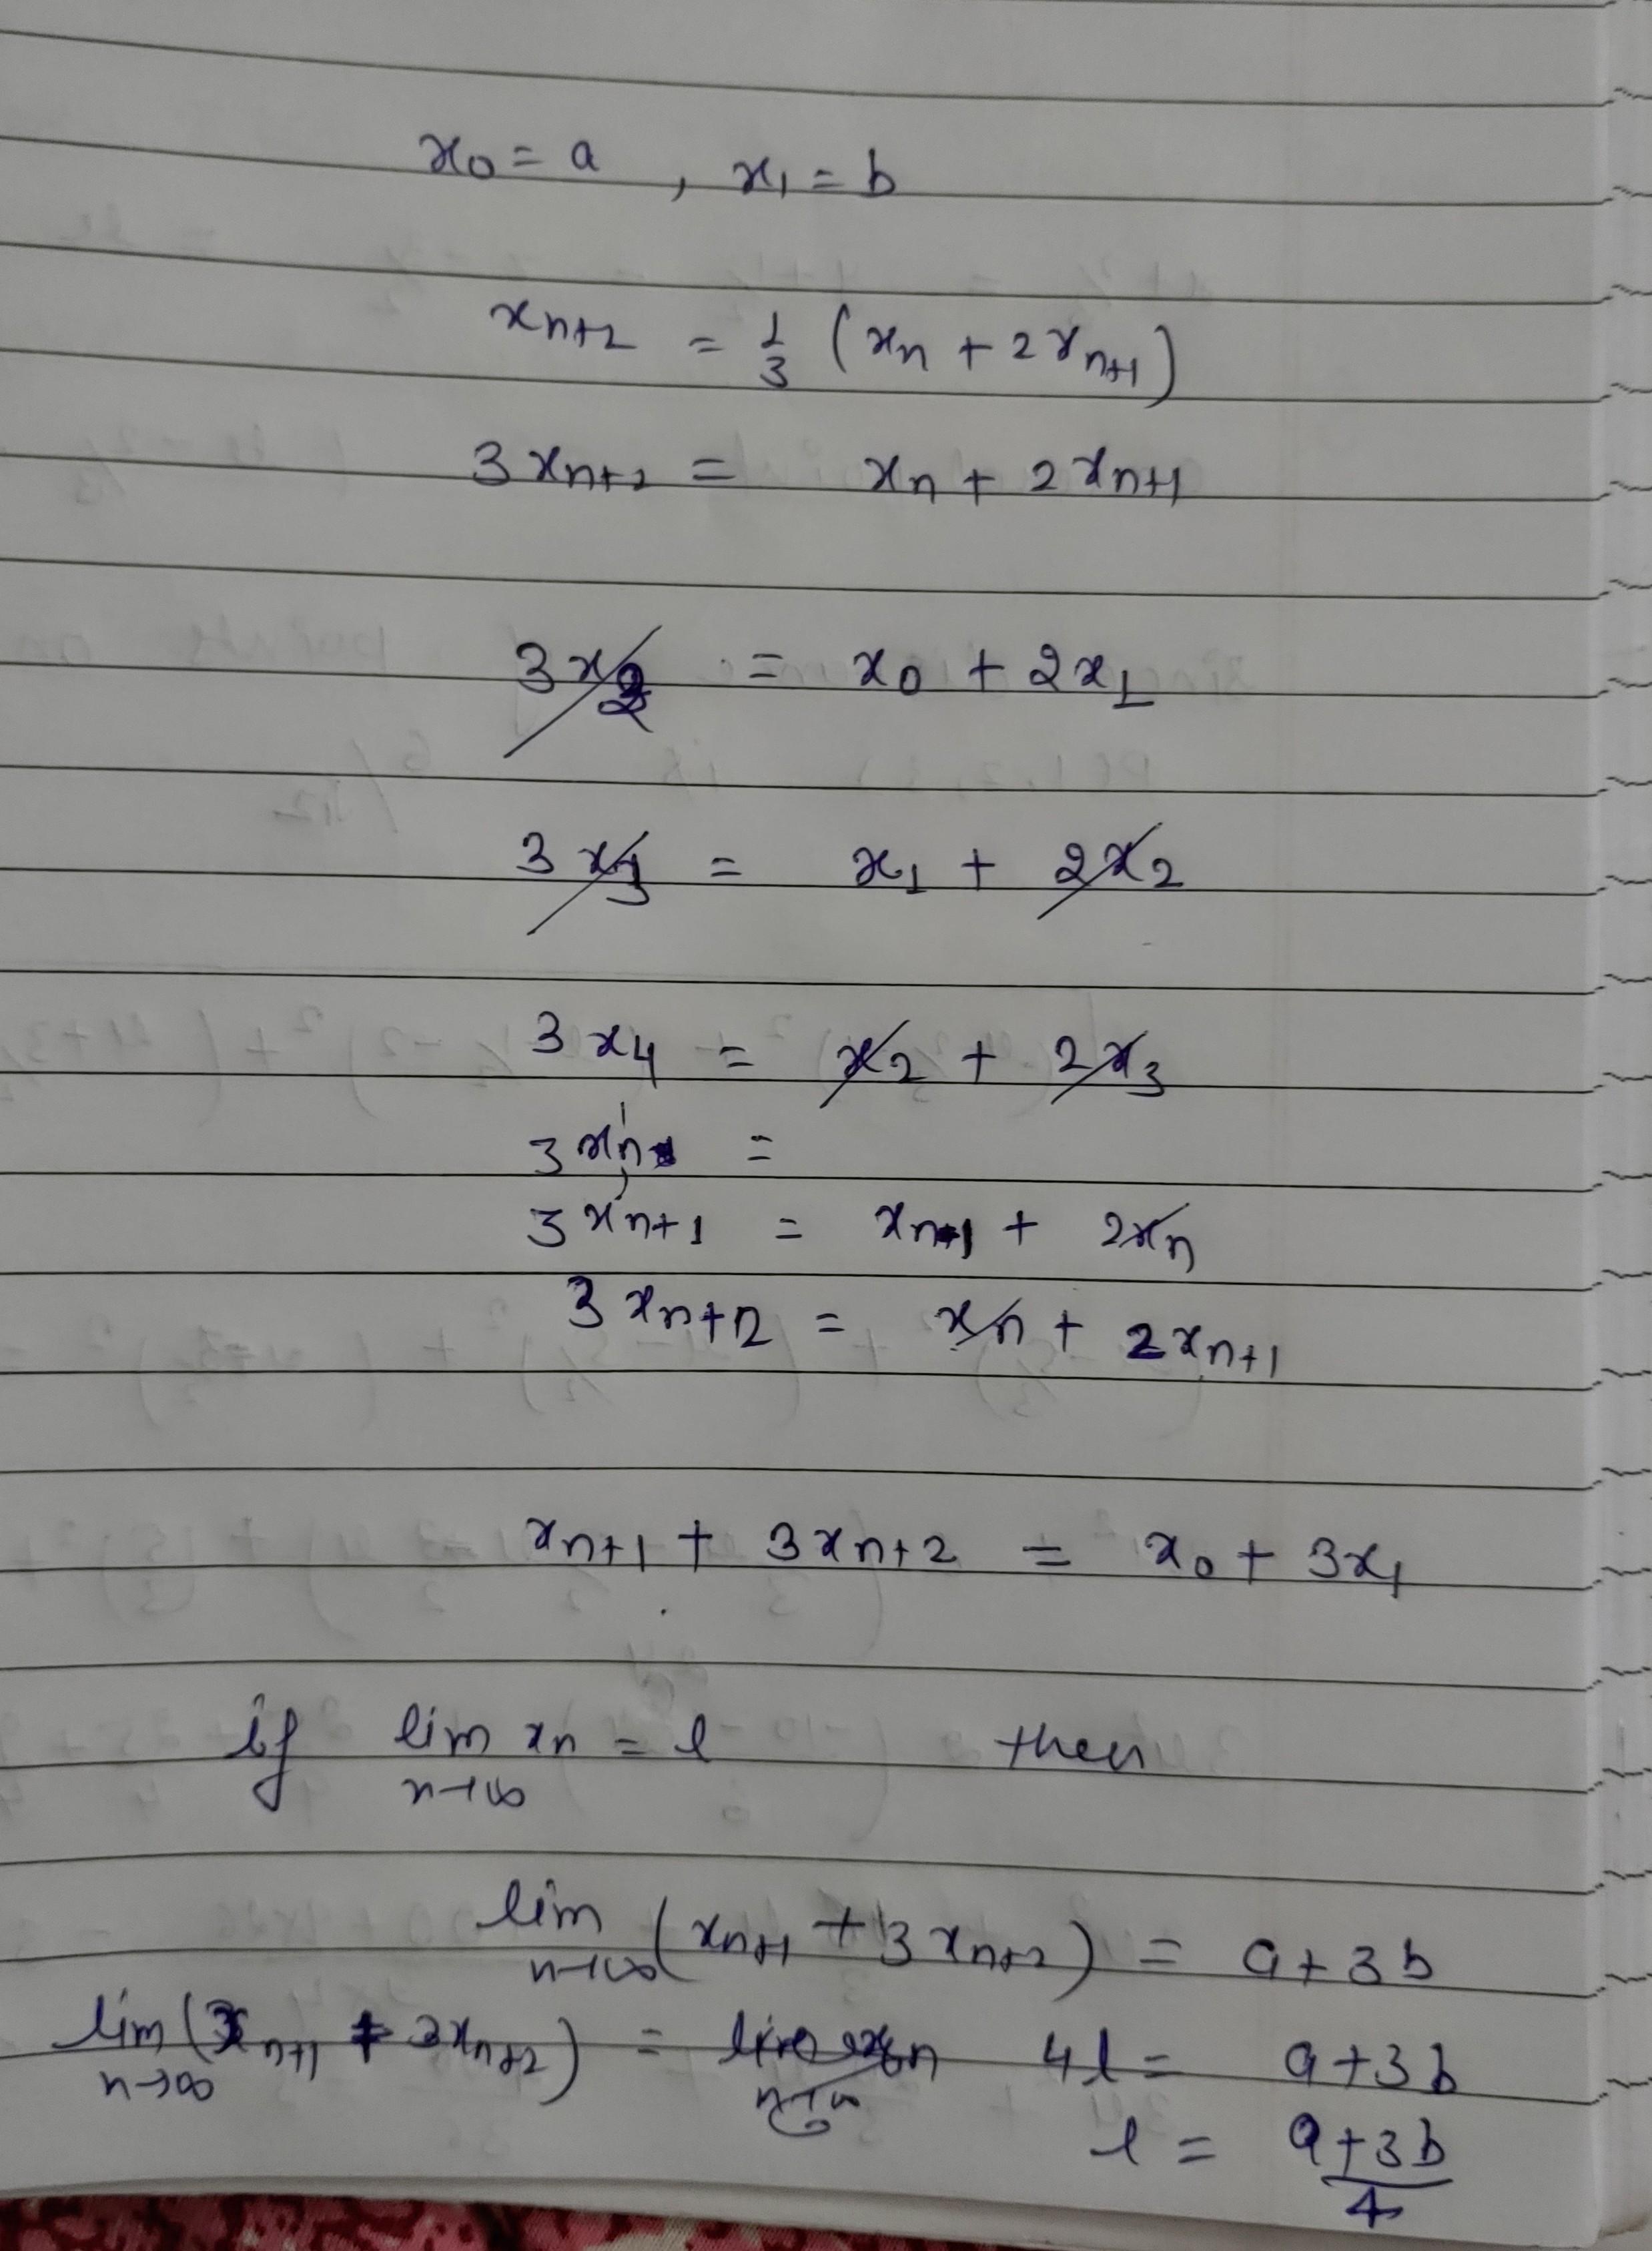 x₀ = a , x₁ = b
xₙ₊₂ = 1/3 (xₙ + 2xₙ₊₁)
3xₙ₊₂ = xₙ + 2xₙ₊₁
3x₂ = x₀ + 2x₁
3x₃ = x₁ + 2x₂
3x₄ = x₂ + 2x₃
3xₙ =
3xₙ₊₁ = xₙ₋₁ + 2xₙ
3xₙ₊₂ = xₙ + 2xₙ₊₁
xₙ₊₁ + 3xₙ₊₂ = x₀ + 3x₁
if lim xₙ = l then
n→∞
lim (xₙ₊₁ + 3xₙ₊₂) = a + 3b
n→∞
lim (xₙ₊₁ + 3xₙ₊₂) = 4l = a + 3b
n→∞
l = a + 3b
4